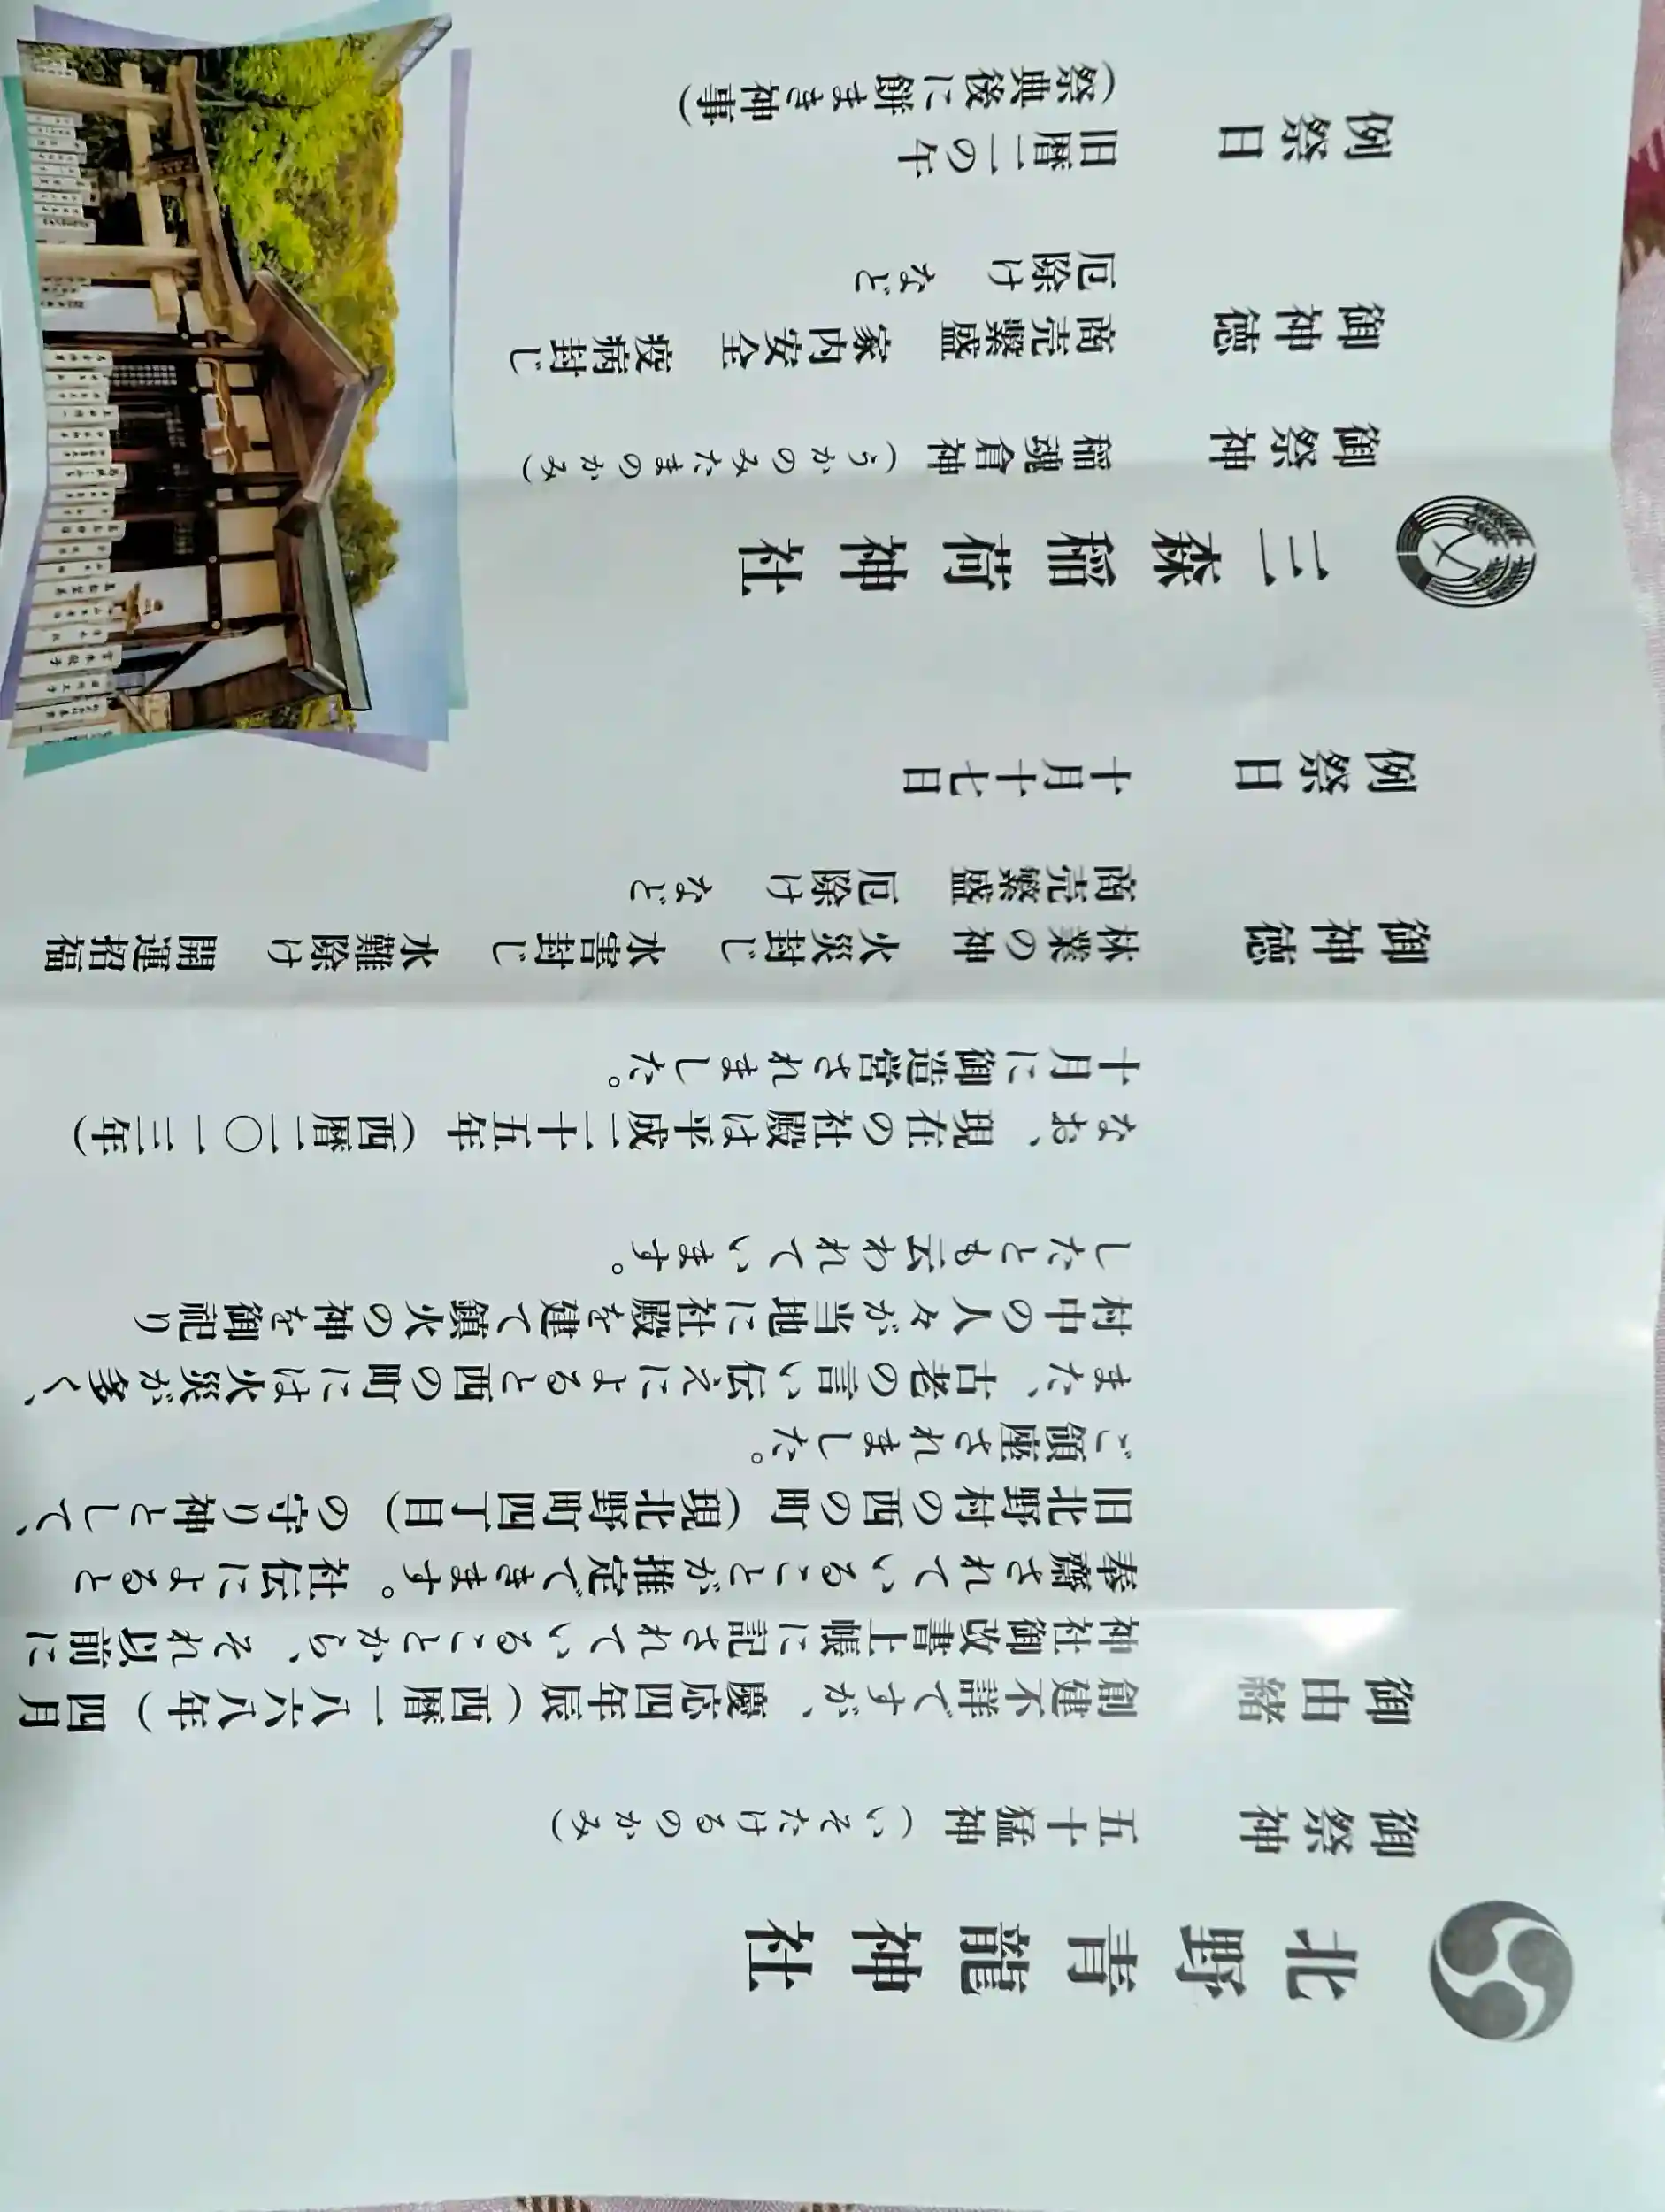 北野青龍神社
御祭神 五十猛神(いそたけるのかみ)
御由緒 創建不詳ですが、慶応四年辰(西暦一八六八年)四月
神社御改書上帳に記されていることから、それ以前に
奉齋されていることが推定できます。社伝によると
旧北野村の西の町(現北野町四丁目)の守り神として、
ご鎮座されました。
また、古老の言い伝えによると西の町には火災が多く、
村中の人々が当地に社殿を建て鎮火の神を御祀り
したとも云われています。
なお、現在の社殿は平成二十五年(西暦二〇一三年)
十月に御造営されました。
御神徳 林業の神 火災封じ 水害封じ 水難除け 開運招福
商売繁盛 厄除け など
例祭日 十月十七日
三森稲荷神社
御祭神 稲魂倉神(うかのみたまのかみ)
御神徳 商売繁盛 家内安全 疫病封じ
厄除け など
例祭日 旧暦二の午
(祭典後に餅まき神事)